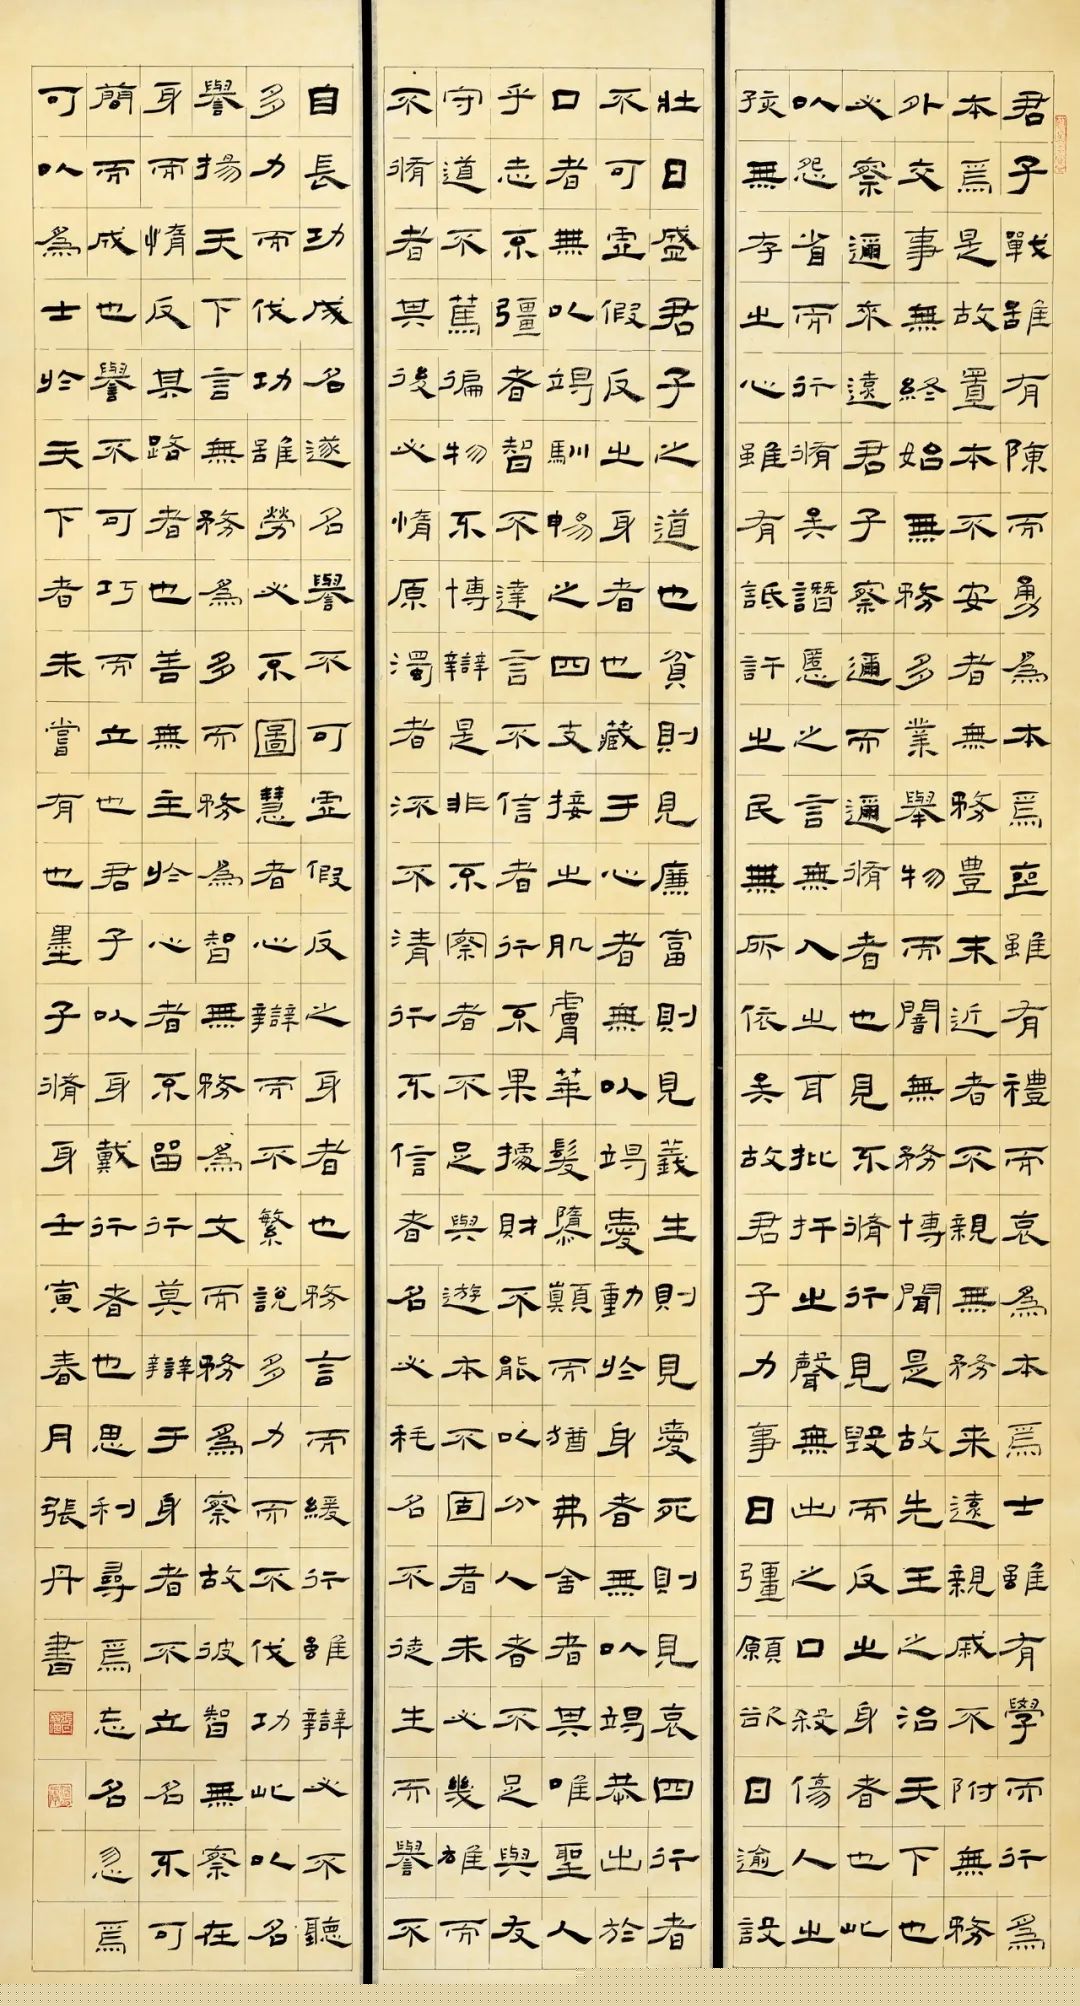 君子戰雖有陳而勇為本焉喪雖有禮而哀為本焉士雖有學而行為
本焉是故置本不安者無務豊末近者不親無務来遠親戚不附無務
外交事無終始無務多業舉物而闇無務博聞是故先王之治天下也
必察邇來遠君子察邇而邇脩者也見不脩行見毀而反之身者也此
以怨省而行脩矣譖慝之言無入之耳批扞之聲無出之口殺傷人之
孩無存之心雖有詆訐之民無所依矣故君子力事日彊願欲日逾設
壯日盛君子之道也貧則見廉富則見義生則見愛死則見哀四行者
不可虛假反之身者也藏于心者無以竭愛動於身者無以竭恭出於
口者無以竭馴暢之四支接之肌膚華髮隳顛而猶弗舍者其唯聖人
乎志不彊者智不達言不信者行不果據財不能以分人者不足與友
守道不篤徧物不博辯是非不察者不足與遊本不固者末必幾雄而
不脩者其後必惰原濁者流不清行不信者名必耗名不徒生而譽不
自長功成名遂名譽不可虛假反之身者也務言而緩行雖辯必不聽
多力而伐功雖勞必不圖慧者心辯而不繁說多力而不伐功此以名
譽揚天下言無務為多而務為智無務為文而務為察故彼智無察在
身而惰反其路者也善無主於心者不留行莫辯于身者不立名不可
簡而成也譽不可巧而立也君子以身戴行者也思利尋焉忘名忽焉
可以為士於天下者未嘗有也墨子脩身壬寅春月張丹書